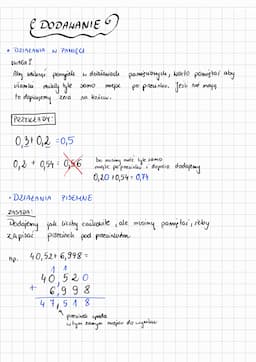 DODAWANIE
• DZIAŁANIA W PAMIĘCI
UWAGA!
Aby uniknąć pomyłek w działaniach pamięciowych, warto pamiętać aby
miały tyle samo miejsc po przecinku. Jeśli nie mają
to dopisujemy zera na końcu.
PRZYKŁADY:
0,3+0,2 =0,5
0,2 + 0,54 = 0,56
bo musimy mieć tyle samo
miejsc po przecinku i dopiero dodajemy
0,20+0,54=0,74
• DZIAŁANIA PISEMNE
ZASADA:
Dodajemy jak liczby całkowite, ale musimy pamiętać, żeby
zapisać przecinek pod przecinkiem.
np. 40,52+6,998=
1 1
40,520
+ 6,998
47,518
przecinek spada
w tym samym miejscu do wyniku